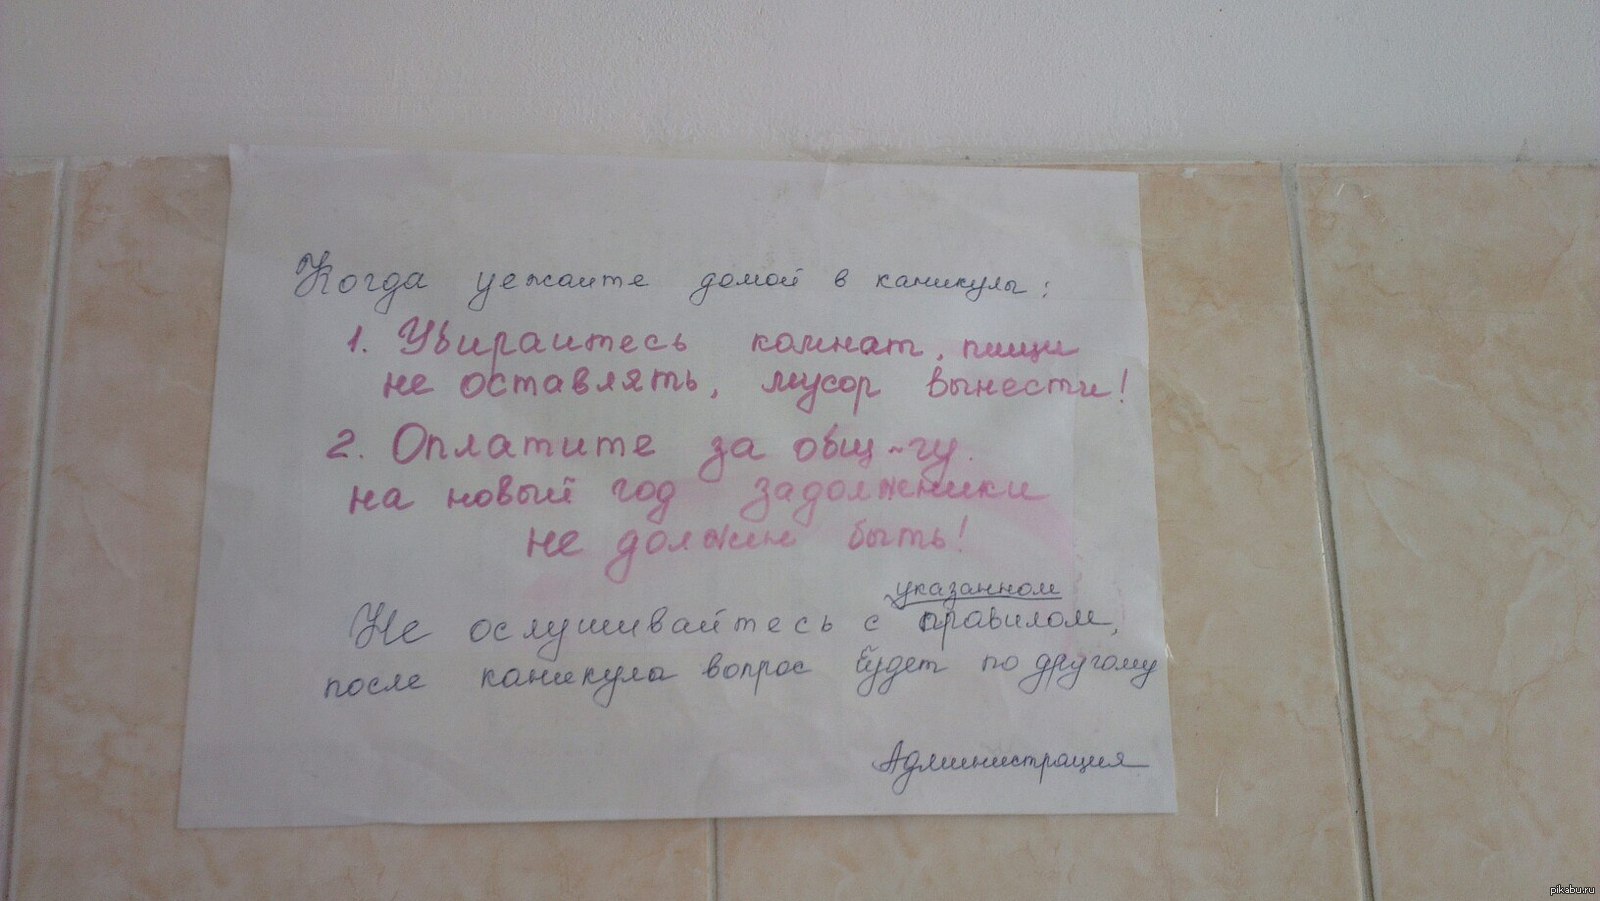 Когда уежаите домой в каникулы:
1. Убираитесь комнат, пищи
не оставлять, мусор вынести!
2. Оплатите за общ~гу.
на новый год задолжники
не должни быть!
указанном
Не ослушивайтесь с правилом,
после каникула вопрос будет по другому
Администрация
pikabu.ru